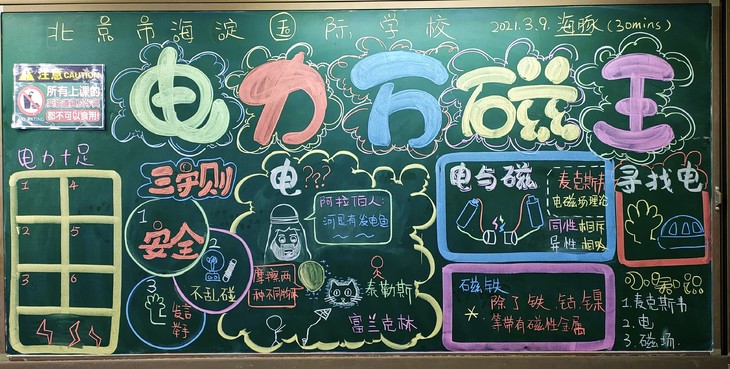 北京市海淀国际学校 2021.3.9. 海豚 (30mins)
注意 CAUTION
所有上课的
都不可以食用!
电力万磁王
电力十足
1 4
2 5
3 6
三守则
1
安全
2
不乱碰
3
发言
举手
电???
阿拉伯人:
河里有发电鱼
摩擦两
种不同物体
泰勒斯
富兰克林
电与磁
麦克斯韦
电磁场理论
同性相斥
异性相吸
磁铁
除了铁、钴、镍
等带有磁性金属
寻找电
小知识
1.麦克斯韦
2.电
3.磁场